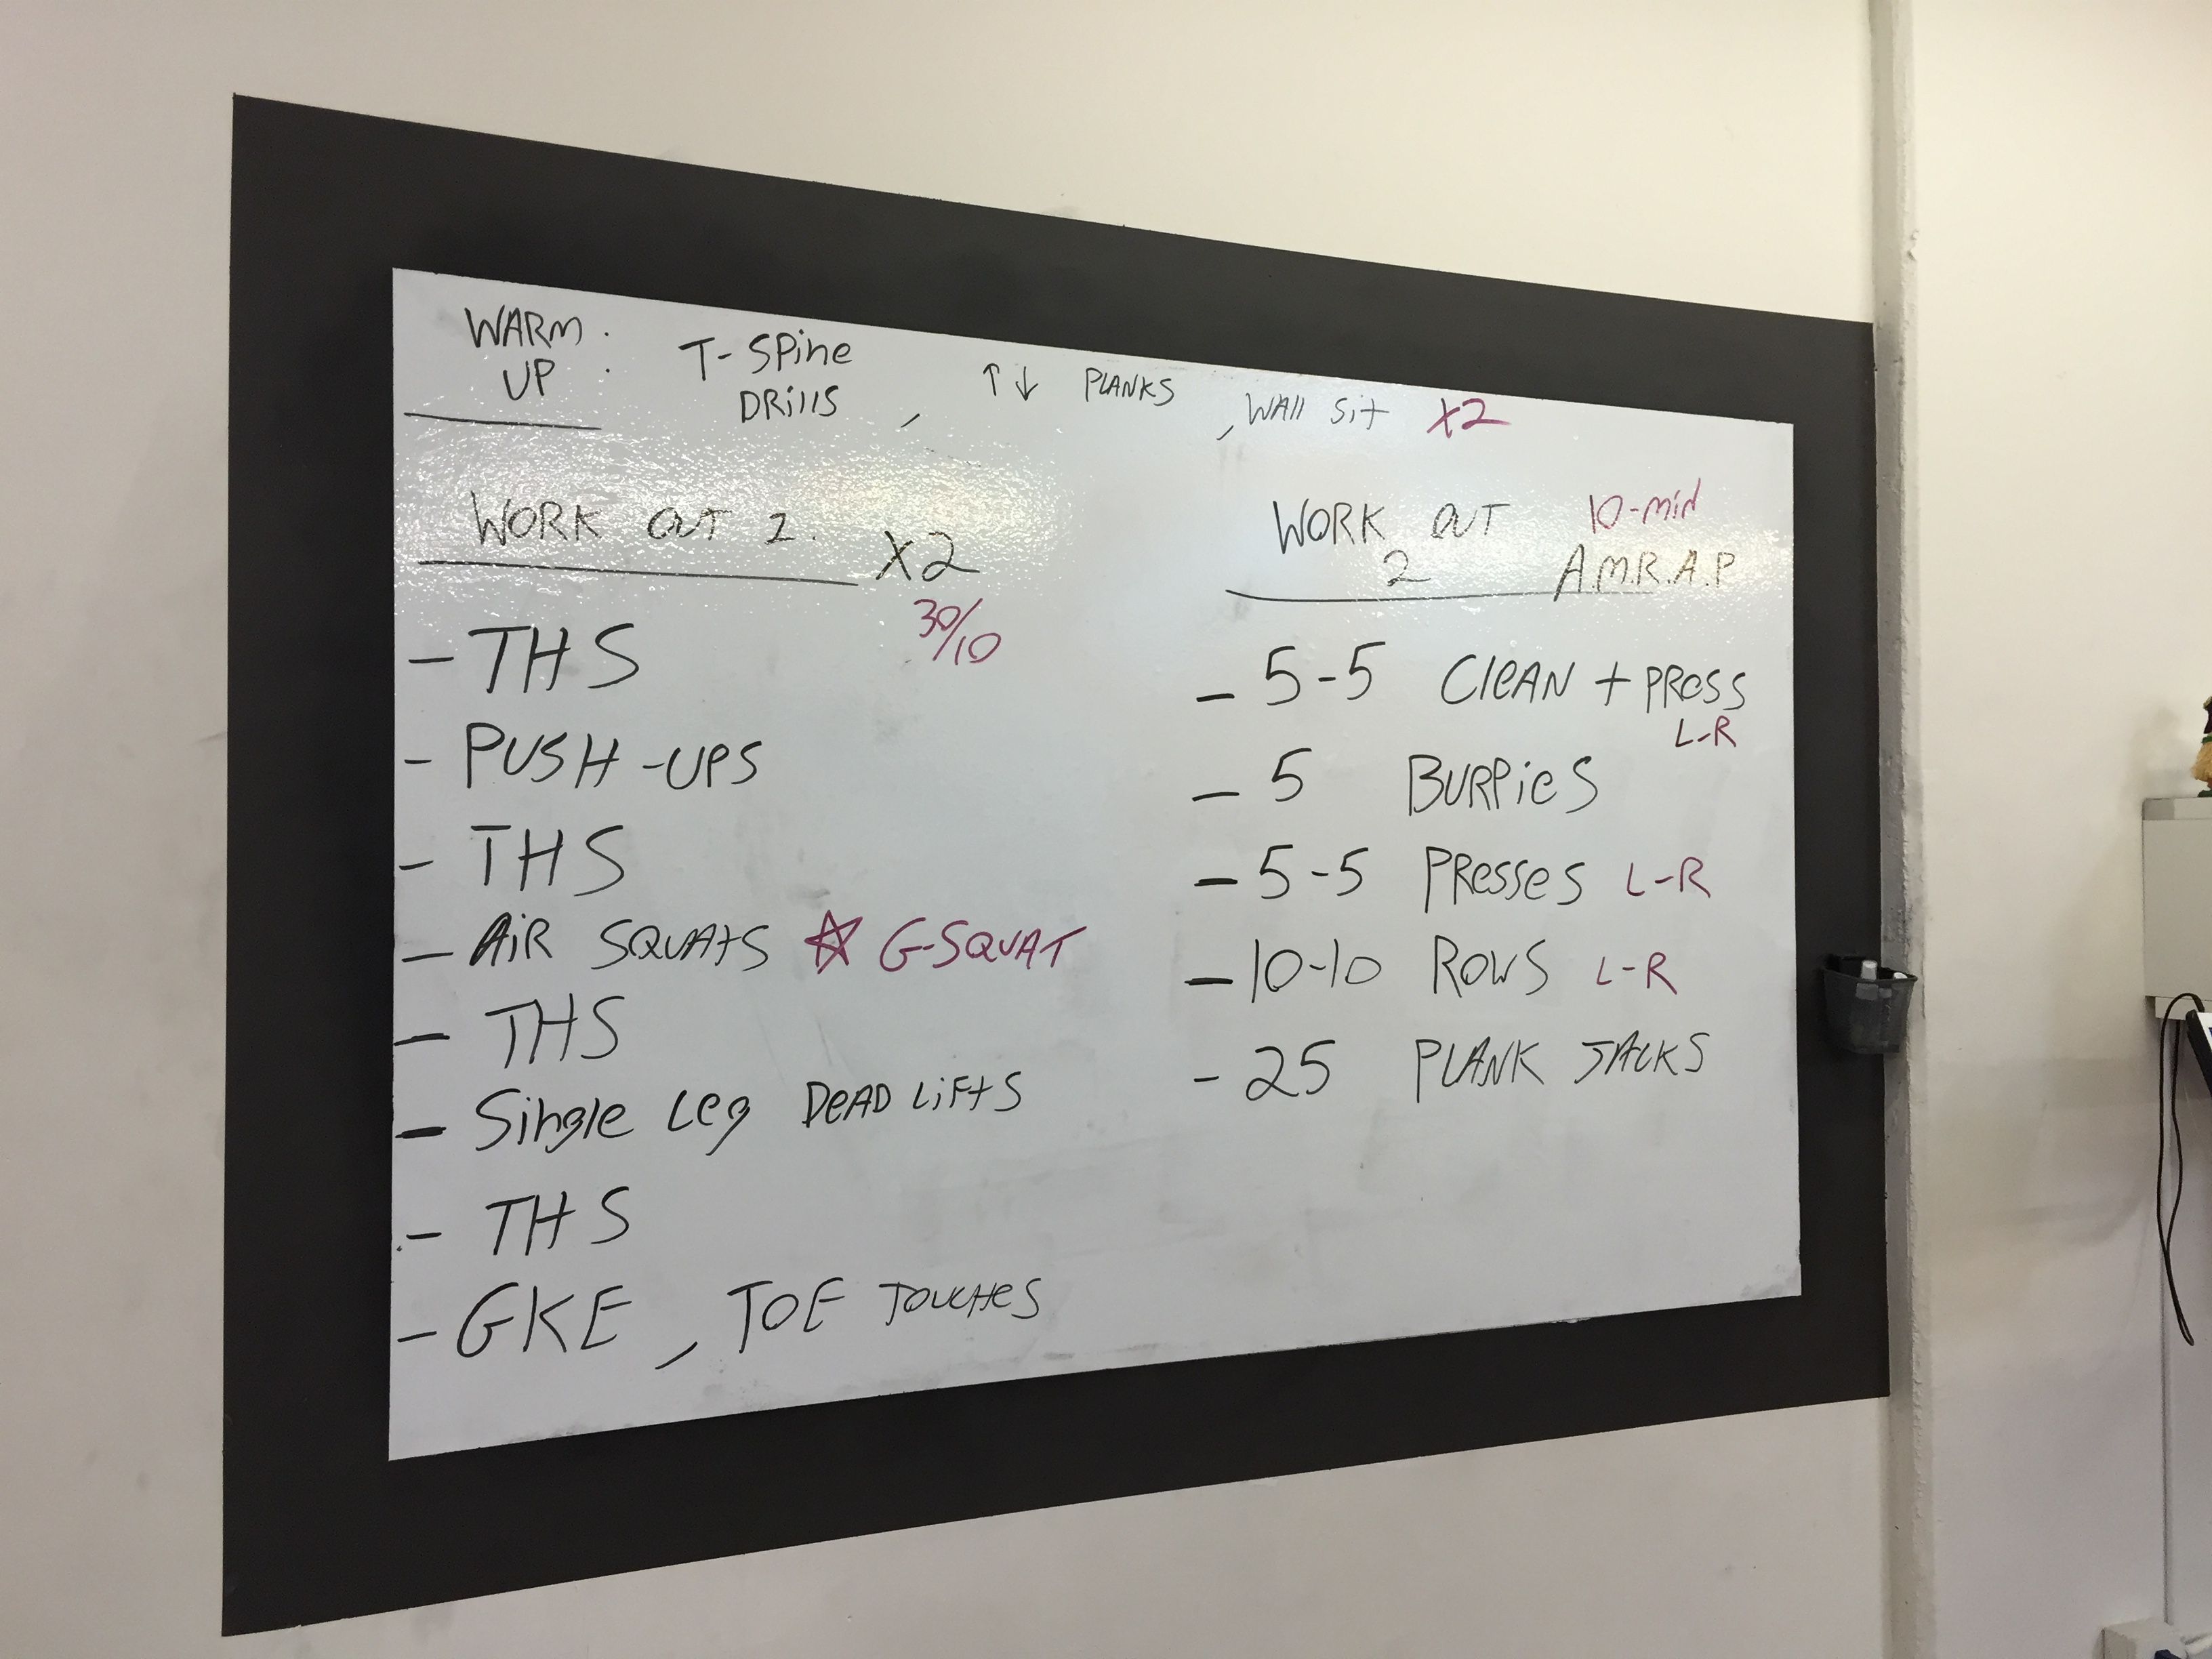 WARM UP : T-SPine DRills , ↑↓ PLANKS , WAll Sit X2
WORK OUT 1. X2
30/10
- THS
- PUSH-UPS
- THS
- AiR SQUAtS ☆ G-SQUAT
- THS
- Single Leg DeAD LiFtS
- THS
- GKE , TOE TOUCHeS
WORK OUT 2 10-min
A.M.R.A.P
- 5-5 CleAN + PReSS
L-R
- 5 BURPieS
- 5-5 PResseS L-R
- 10-10 ROWS L-R
- 25 PLANK JACKS